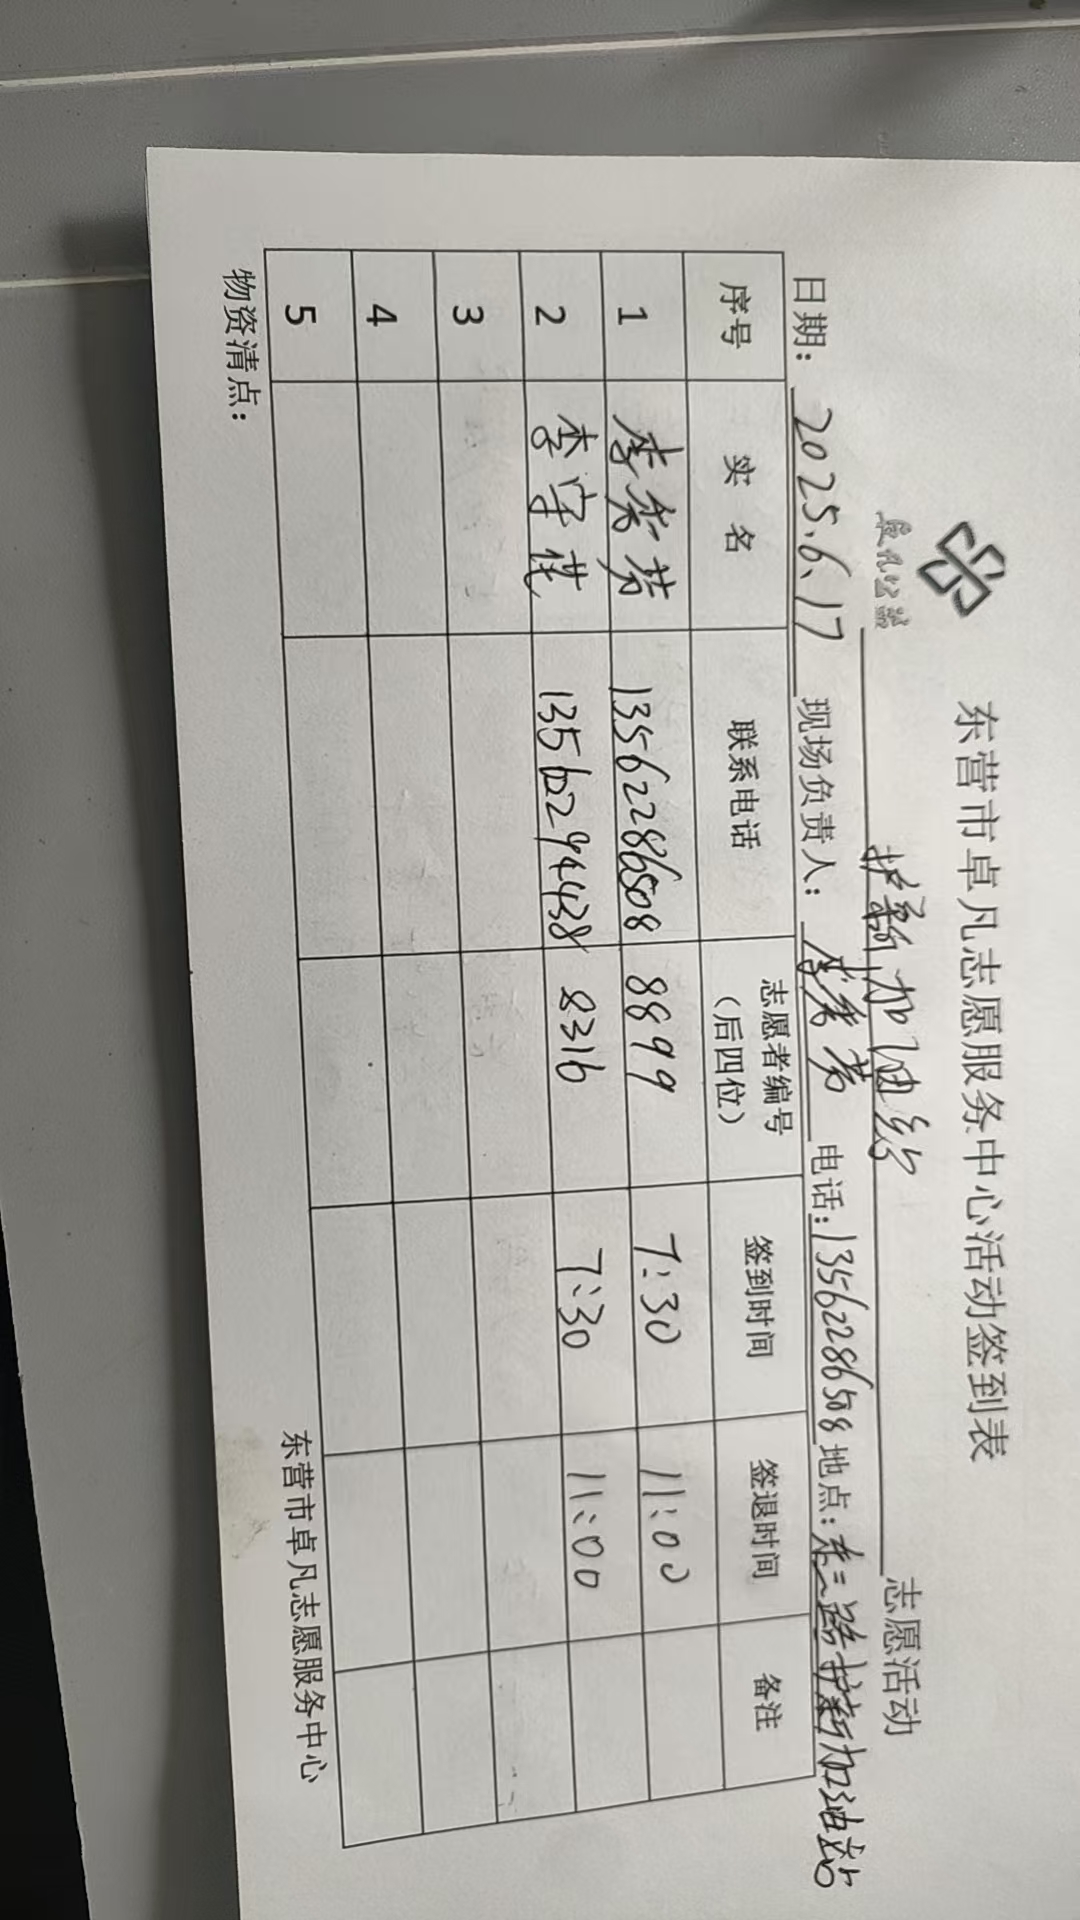 东营市卓凡志愿服务中心活动签到表
卓凡公益
护新加油站 志愿活动
日期: 2025.6.17 现场负责人: 李秀芳 电话:13562286508 地点:东二路护新加油站
序号 实名 联系电话 志愿者编号(后四位) 签到时间 签退时间 备注
1 李秀芳 13562286508 8899 7:30 11:00
2 李字 13562294438 8316 7:30 11:00
3
4
5
物资清点:
东营市卓凡志愿服务中心